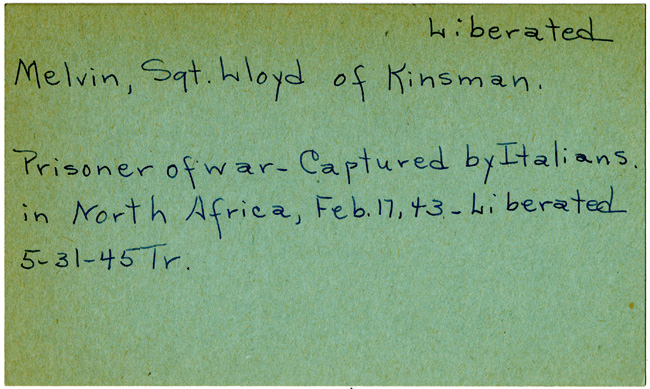 Liberated
Melvin, Sgt. Lloyd of Kinsman.
Prisoner of war - Captured by Italians.
in North Africa, Feb. 17, 43 - Liberated
5-31-45 Tr.